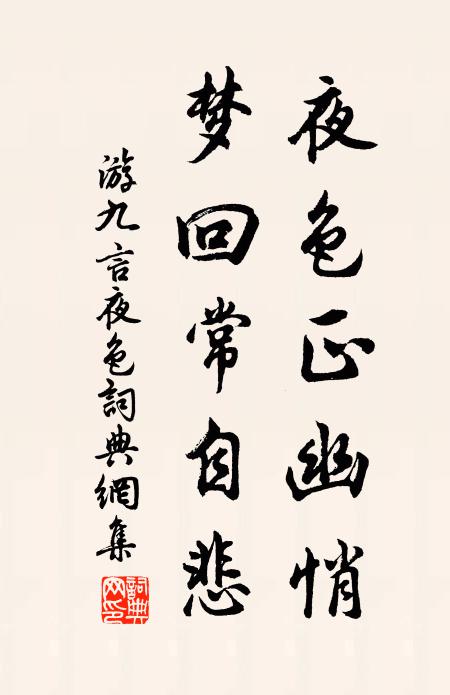 夜色正幽悄
梦回常自悲
游九言夜色詞典網集
詞典網印